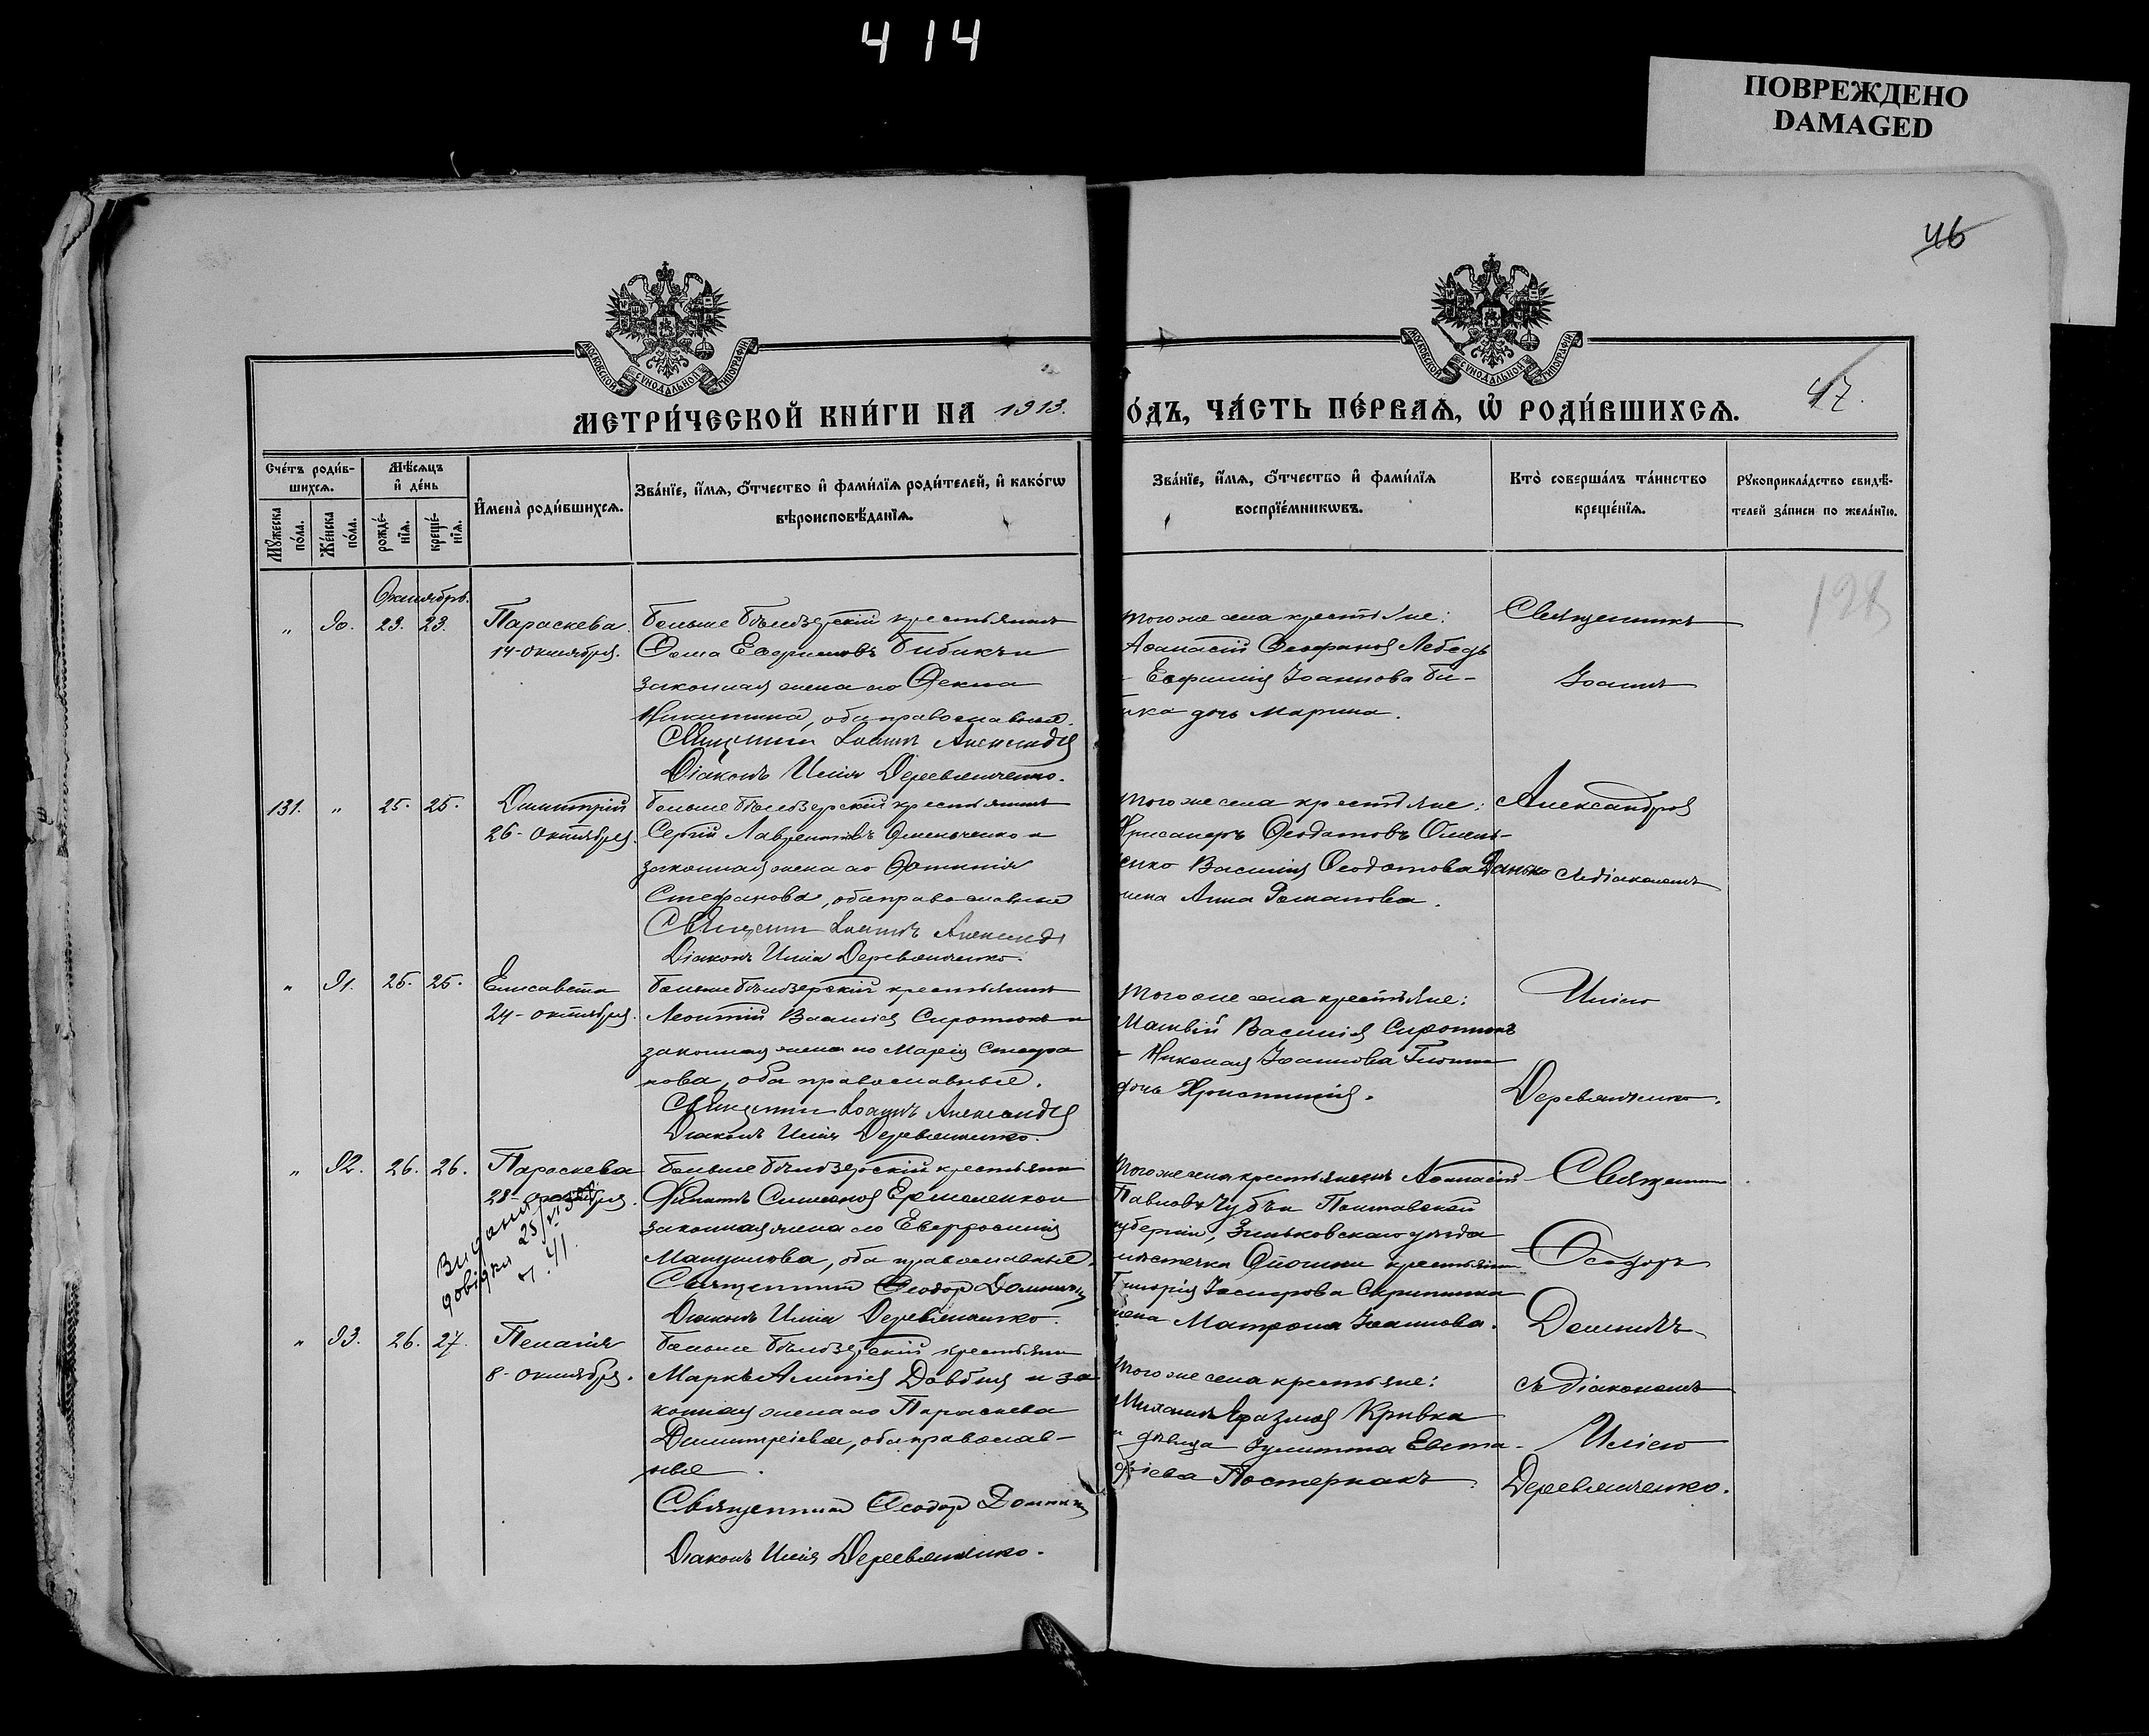 414
ПОВРЕЖДЕНО
DAMAGED
46
МОСКОВСКОЙ СУНОДАЛЬНОЙ ТИПОГРАФІИ
МОСКОВСКОЙ СУНОДАЛЬНОЙ ТИПОГРАФІИ
47.
МЕТРИ́ЧЕСКОЙ КНИ́ГИ НА 1913.
О́ДЪ, ЧА́СТЬ ПЕ́РВАѦ, Ѡ РОДИ́ВШИХСѦ.
Сче́тъ роди́в-
шихсѧ.
Мѣ́сѧцъ
и де́нь
Мꙋ́жеска
по́ла.
Же́нска
по́ла.
рожде́-
нїѧ.
креще́-
нїѧ.
Имена̀ роди́вшихсѧ.
Зва́нїе, и́мѧ, о́тчество и фами́лїѧ роди́телей, и како́гѡ
вѣроисповѣ́данїѧ.
Зва́нїе, и́мѧ, о́тчество и фами́лїѧ
воспрїе́мникѡвъ.
Кто̀ соверша́лъ та́инство
креще́нїѧ.
Рꙋкоприкла́дство свидѣ́-
телей за́писи по жела́нїю.
128
Октябрь.
" 90. 23. 23. Параскева
14-Октября.
Больше Бѣлозерскій крестьянинъ
Ѳома Евфимовъ Бибикъ и
законная жена его Ѳекла
Никитина, оба православные.
Священникъ Іоаннъ Александровъ
Діаконъ Илія Деревянченко.
того же села крестьяне:
Аѳанасій Стефановъ Лебедь
Евфимія Іоаннова Би-
ика дочь Марина.
Священникъ
Іоаннъ
131. " 25. 25. Димитрій
26-Октября.
Больше Бѣлозерскій крестьянинъ
Сергій Лаврентіевъ Омельченко и
законная жена его Фотинія
Стефанова, оба православные
Священникъ Іоаннъ Александровъ
Діаконъ Илія Деревянченко.
того же села крестьяне:
Хрисанѳъ Ѳеодотовъ Омель-
ченко Василія Ѳеодотова Данько
жена Анна Романова.
Александровъ
съ діакономъ
" 91. 25. 25. Елисавета
24-октября.
Больше Бѣлозерскій крестьянинъ
Леонтій Василіевъ Сиротюкъ и
законная жена его Марія Стефа
нова, оба православные.
Священникъ Іоаннъ Александровъ
Діаконъ Илія Деревянченко.
того же села крестьяне:
Матвій Василіевъ Сиротюкъ
Николая Іоаннова
дочь Христинія.
Иліею
Деревянченко.
" 92. 26. 26. Параскева
28-октября.
Видані
довідки 25/VI
41.
Больше Бѣлозерскій крестьянинъ
Филиппъ Симеоновъ Ермоленко и
законная жена его Евфросинія
Мануилова, оба православные.
Священникъ Ѳеодоръ
Діаконъ Илія Деревянченко.
того же села крестьянинъ Аѳанасій
Павловъ Чубъ и Полтавской
губерніи, Зиньковскаго уѣзда
мѣстечка Опошни крестьянина
Григорія Іосифова Скрипника
жена Матрона Іоаннова.
Священникъ
Ѳеодоръ
" 93. 26. 27. Пелагія
8-октября.
Больше Бѣлозерскій крестьянинъ
Маркъ Алипіевъ Довбня и за
конная жена его Параскева
Димитріева, оба православ-
ные.
Священникъ Ѳеодоръ
Діаконъ Илія Деревянченко.
того же села крестьяне:
Михаилъ Еразмовъ Кривка
и дѣвица Іулитта Евста-
фіева Пастернакъ.
съ діакономъ
Иліею
Деревянченко.